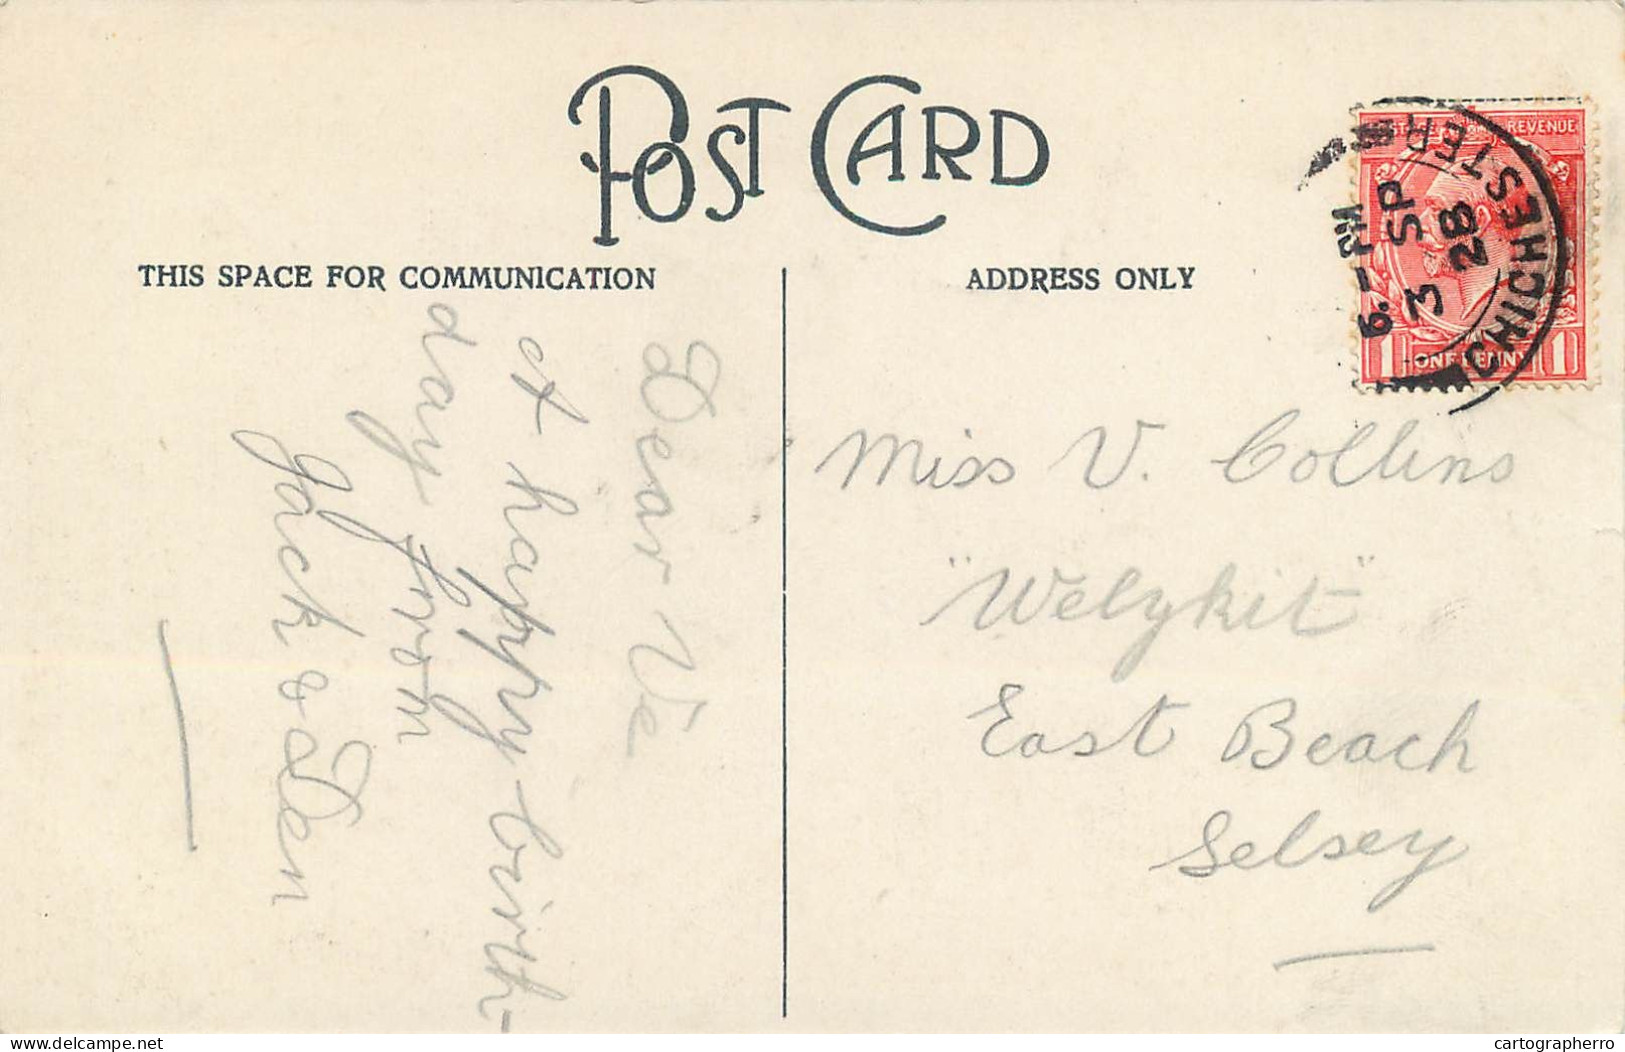 POST CARD
THIS SPACE FOR COMMUNICATION
ADDRESS ONLY
REVENUE
ONE PENNY
1 1
CHICHESTER
6. - PM
3 SP
28
Dear Ve
A happy birth-
day from
Jack & Den
Miss V. Collins
"Welykit"
East Beach
Selsey
www.delcampe.net
cartographerro